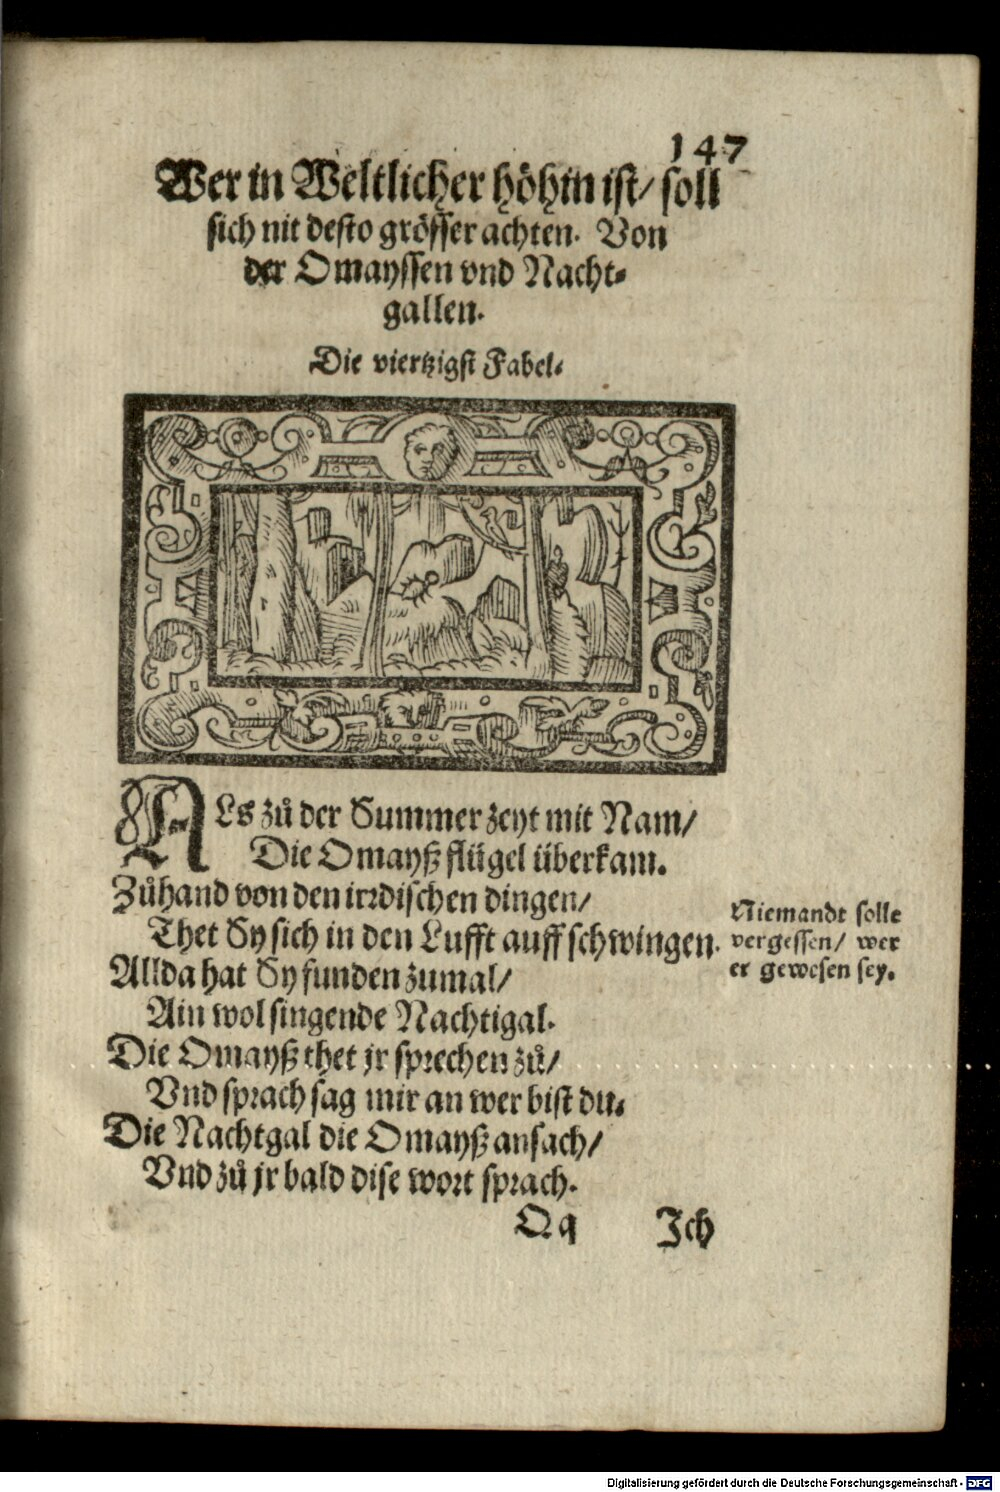 147
Wer in Weltlicher höhin ist/ soll
sich nit desto grösser achten. Von
der Omayssen vnd Nacht-
gallen.
Die viertzigst Fabel.
ALs zů der Summer zeyt mit Nam/
Die Omayß flügel überkam.
Zůhand von den irrdischen dingen/
Thet Sy sich in den Lufft auff schwingen.
Allda hat Sy funden zumal/
Ain wol singende Nachtigal.
Die Omayß thet jr sprechen zů/
Vnd sprach sag mir an wer bist du.
Die Nachtgal die Omayß ansach/
Vnd zů jr bald dise wort sprach.
Niemandt solle
vergessen/ wer
er gewesen sey.
Qq Ich
Digitalisierung gefördert durch die Deutsche Forschungsgemeinschaft - DFG